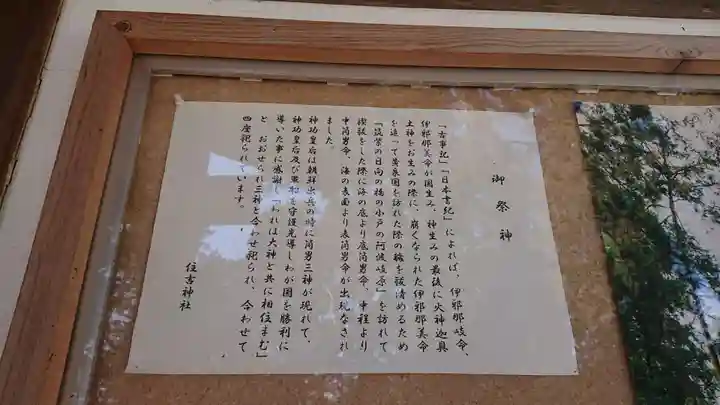 御祭神
「古事記」「日本書紀」によれば、伊邪那岐命、
伊邪那美命が国生み、神生みの最後に火神迦具
土神をお生みの際に、崩くなられた伊邪那美命
を追って黄泉国を訪れた際の穢を祓清めるため
「筑紫の日向の橘の小戸の阿波岐原」を訪れて
禊祓をした際に海の底より底筒男命、中程より
中筒男命、海の表面より表筒男命が出現なされ
ました。
神功皇后は朝鮮出兵の時に筒男三神が現れて、
神功皇后及び軍船を守護光導しわが国を勝利に
導いた事に感謝し「われは大神と共に相住まむ」
と、おおせられ三神と合わせ祀られ、合わせて
四座祀られています。
住吉神社